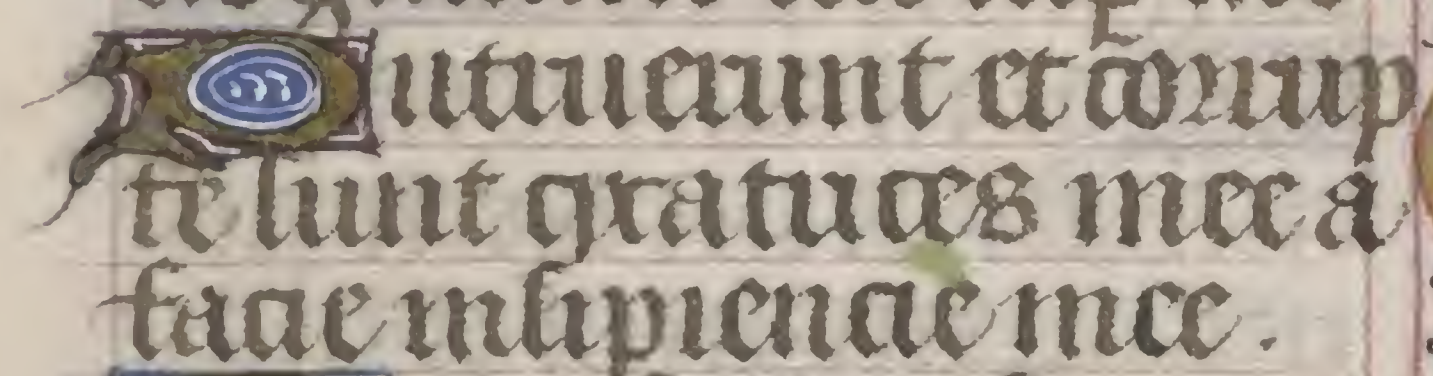 Putruerunt et corrup
te sunt cicatrices mee a
facie insipiencie mee.